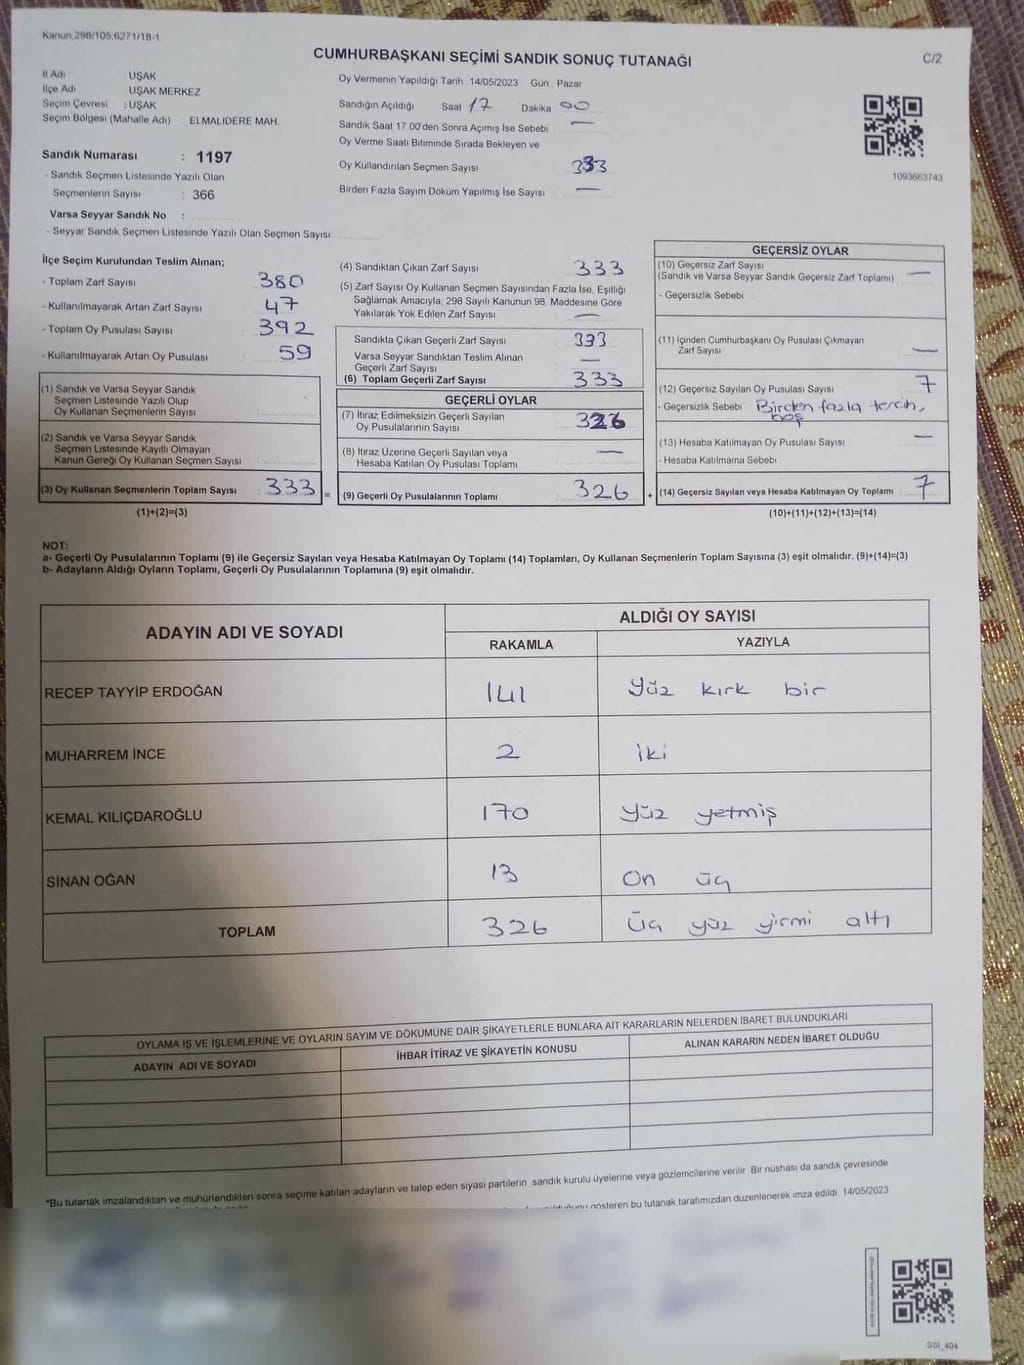 Kanun 298/105,6271/18-1
CUMHURBAŞKANI SEÇİMİ SANDIK SONUÇ TUTANAĞI
C/2
İl Adı : UŞAK
İlçe Adı UŞAK MERKEZ
Seçim Çevresi : UŞAK
Seçim Bölgesi (Mahalle Adı) : ELMALIDERE MAH.
Sandık Numarası : 1197
- Sandık Seçmen Listesinde Yazılı Olan
Seçmenlerin Sayısı : 366
Varsa Seyyar Sandık No :
- Seyyar Sandık Seçmen Listesinde Yazılı Olan Seçmen Sayısı
Oy Vermenin Yapıldığı Tarih 14/05/2023 Gün Pazar
Sandığın Açıldığı Saat 17 Dakika 00
Sandık Saat 17.00'den Sonra Açımış İse Sebebi —
Oy Verme Saati Bitiminde Sırada Bekleyen ve
Oy Kullandırılan Seçmen Sayısı 333
Birden Fazla Sayım Döküm Yapılmış İse Sayısı —
1093663743
İlçe Seçim Kurulundan Teslim Alınan;
- Toplam Zarf Sayısı 380
- Kullanılmayarak Artan Zarf Sayısı 47
- Toplam Oy Pusulası Sayısı 392
- Kullanılmayarak Artan Oy Pusulası 59
(1) Sandık ve Varsa Seyyar Sandık
Seçmen Listesinde Yazılı Olup
Oy Kullanan Seçmenlerin Sayısı
(2) Sandık ve Varsa Seyyar Sandık
Seçmen Listesinde Kayıtlı Olmayan
Kanun Gereği Oy Kullanan Seçmen Sayısı
(3) Oy Kullanan Seçmenlerin Toplam Sayısı : 333 =
(1)+(2)=(3)
(4) Sandıktan Çıkan Zarf Sayısı 333
(5) Zarf Sayısı Oy Kullanan Seçmen Sayısından Fazla İse, Eşitliği
Sağlamak Amacıyla, 298 Sayılı Kanunun 98. Maddesine Göre
Yakılarak Yok Edilen Zarf Sayısı —
Sandıkta Çıkan Geçerli Zarf Sayısı 333
Varsa Seyyar Sandıktan Teslim Alınan
Geçerli Zarf Sayısı —
(6) Toplam Geçerli Zarf Sayısı 333
GEÇERLİ OYLAR
(7) İtiraz Edilmeksizin Geçerli Sayılan
Oy Pusulalarının Sayısı 326
(8) İtiraz Üzerine Geçerli Sayılan veya
Hesaba Katılan Oy Pusulası Toplamı —
(9) Geçerli Oy Pusulalarının Toplamı 326 +
GEÇERSİZ OYLAR
(10) Geçersiz Zarf Sayısı
(Sandık ve Varsa Seyyar Sandık Geçersiz Zarf Toplamı) —
- Geçersizlik Sebebi
(11) İçinden Cumhurbaşkanı Oy Pusulası Çıkmayan
Zarf Sayısı —
(12) Geçersiz Sayılan Oy Pusulası Sayısı 7
- Geçersizlik Sebebi Birden fazla tercih,
boş
(13) Hesaba Katılmayan Oy Pusulası Sayısı —
- Hesaba Katılmama Sebebi
(14) Geçersiz Sayılan veya Hesaba Katılmayan Oy Toplamı 7
(10)+(11)+(12)+(13)=(14)
NOT:
a- Geçerli Oy Pusulalarının Toplamı (9) ile Geçersiz Sayılan veya Hesaba Katılmayan Oy Toplamı (14) Toplamları, Oy Kullanan Seçmenlerin Toplam Sayısına (3) eşit olmalıdır. (9)+(14)=(3)
b- Adayların Aldığı Oyların Toplamı, Geçerli Oy Pusulalarının Toplamına (9) eşit olmalıdır.
ADAYIN ADI VE SOYADI
ALDIĞI OY SAYISI
RAKAMLA YAZIYLA
RECEP TAYYİP ERDOĞAN 141 Yüz kırk bir
MUHARREM İNCE 2 iki
KEMAL KILIÇDAROĞLU 170 Yüz yetmiş
SİNAN OĞAN 13 On üç
TOPLAM 326 üç yüz yirmi altı
OYLAMA İŞ VE İŞLEMLERİNE VE OYLARIN SAYIM VE DÖKÜMÜNE DAİR ŞİKAYETLERLE BUNLARA AİT KARARLARIN NELERDEN İBARET BULUNDUKLARI
ADAYIN ADI VE SOYADI İHBAR İTİRAZ VE ŞİKAYETİN KONUSU ALINAN KARARIN NEDEN İBARET OLDUĞU
*Bu tutanak imzalandıktan ve mühürlendikten sonra seçime katılan adayların ve talep eden siyasi partilerin sandık kurulu üyelerine veya gözlemcilerine verilir. Bir nüshası da sandık çevresinde
gösteren bu tutanak tarafımızdan düzenlenerek imza edildi. 14/05/2023
SSI_404